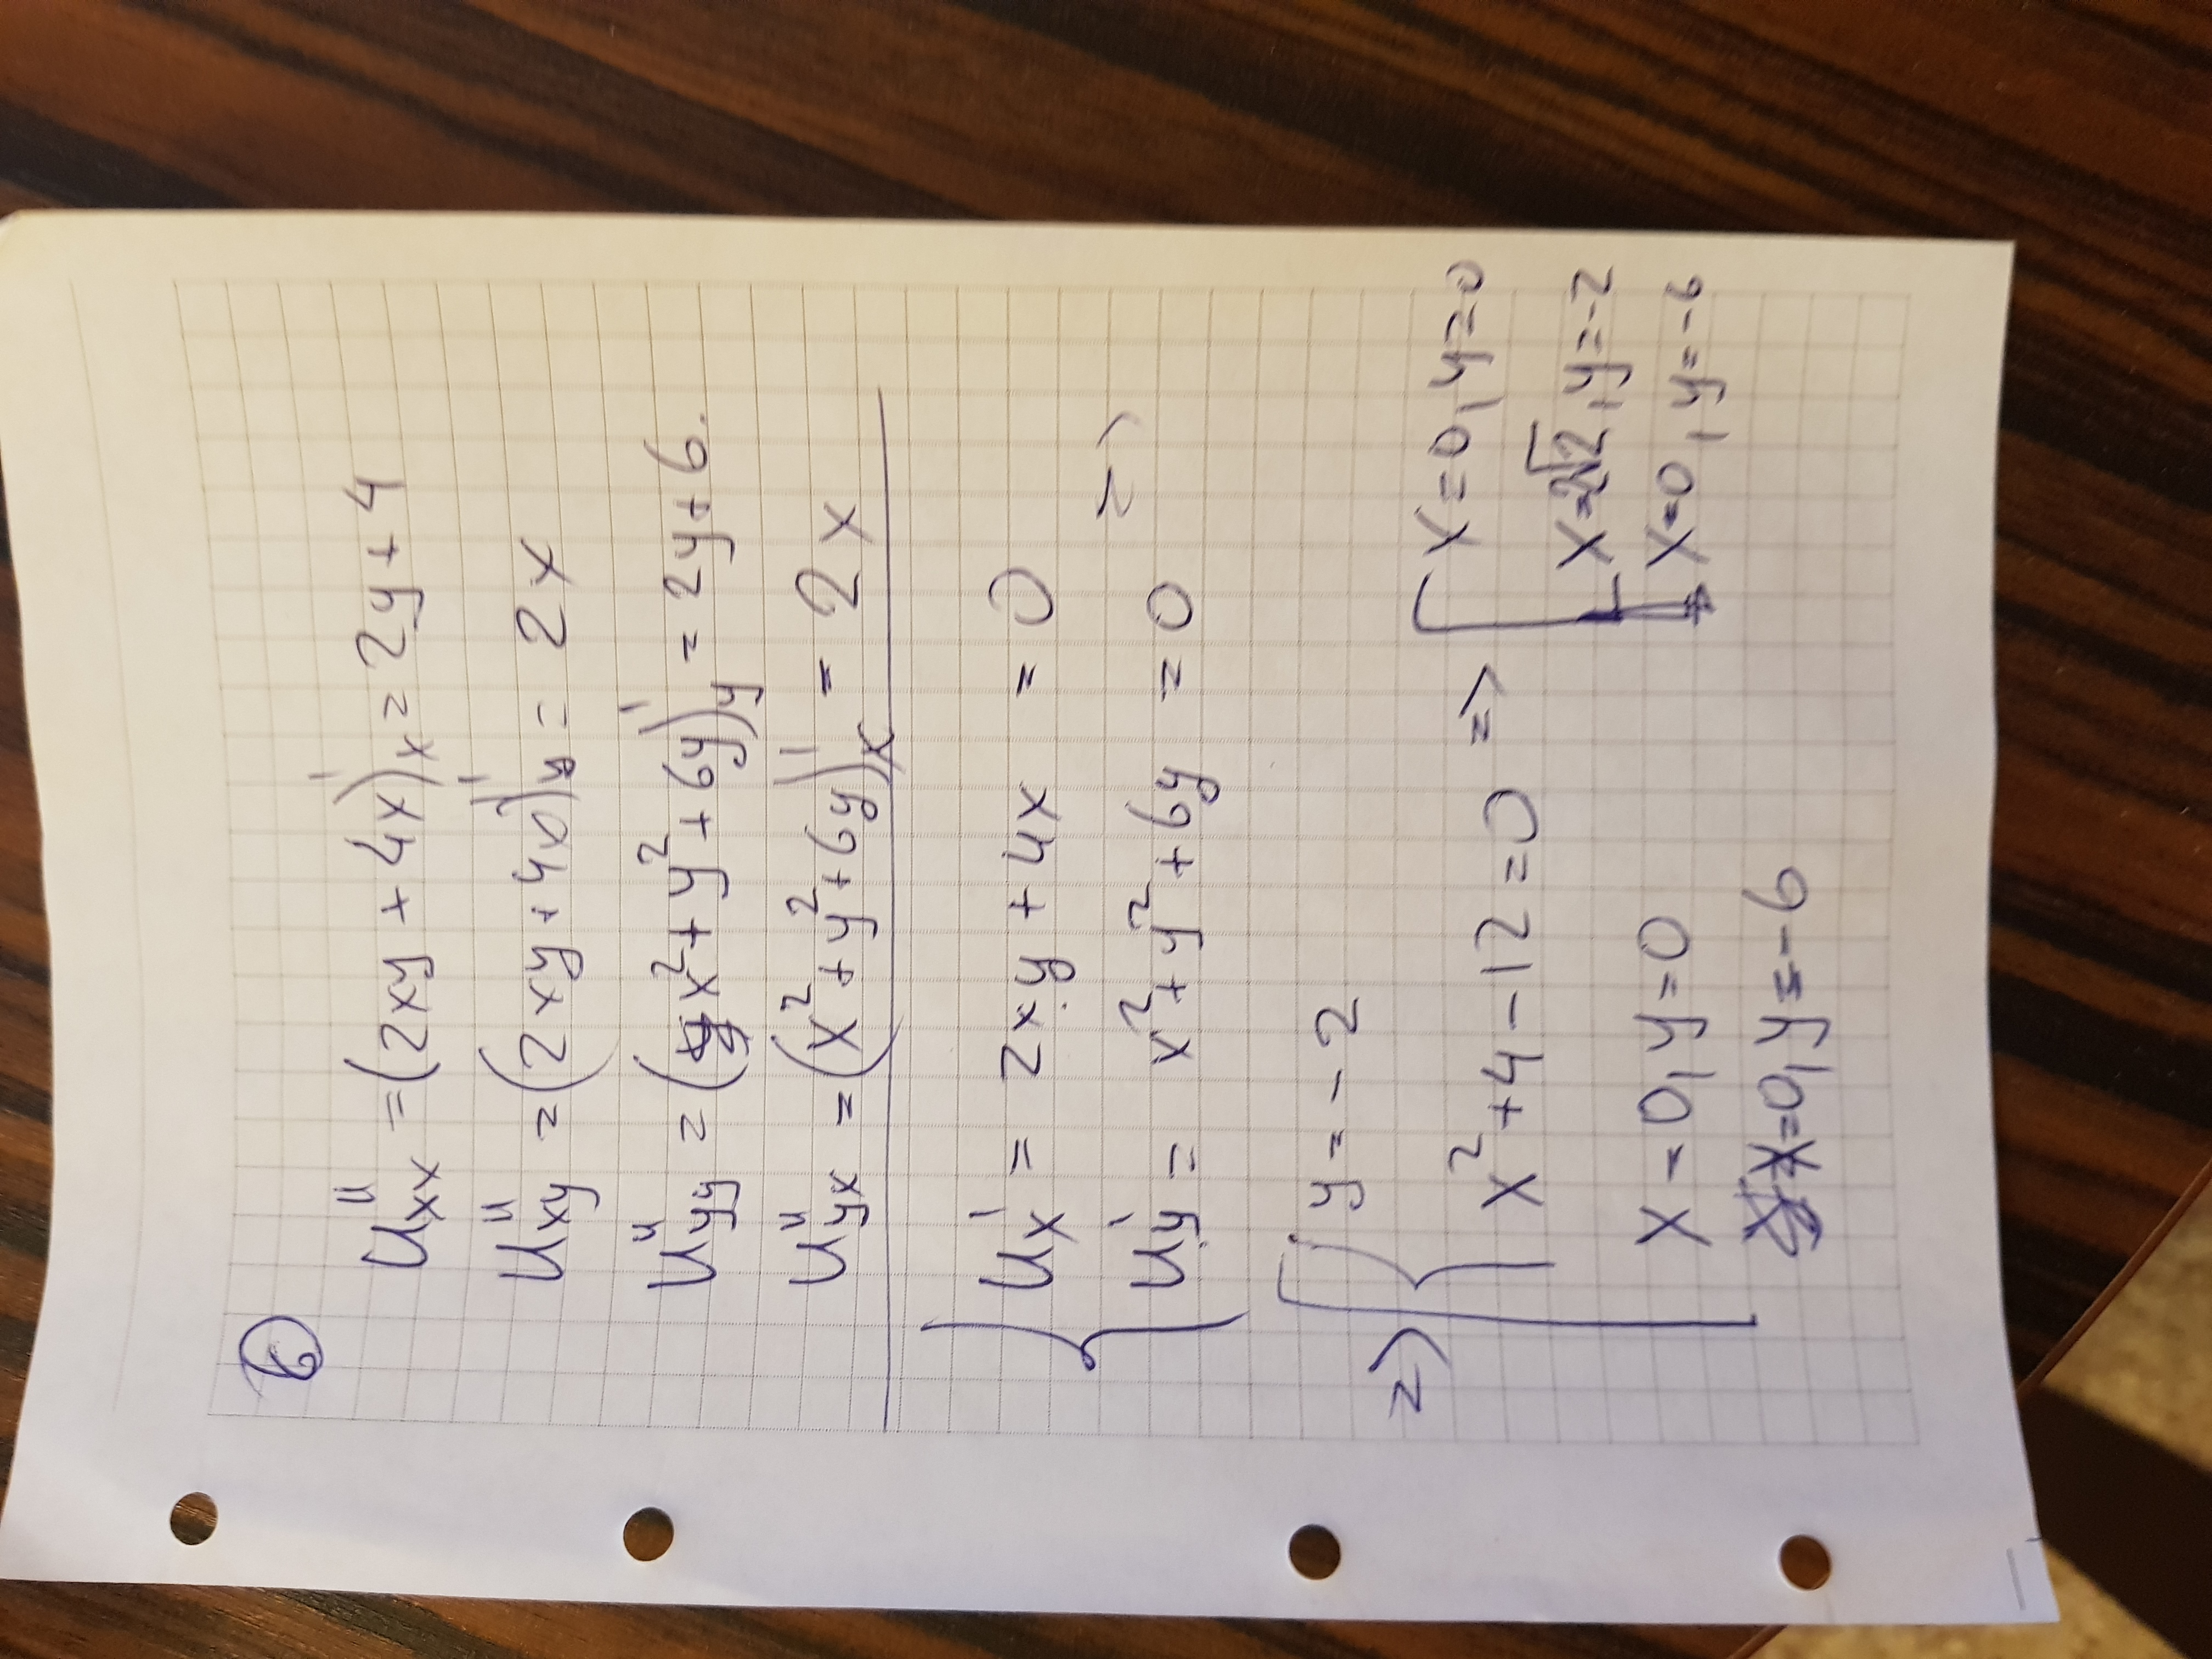 6
U''xx = (2xy + 4x)'x = 2y + 4
U''xy = (2xy + 4x)'y = 2x
U''yy = (x² + y² + 6y)'y = 2y + 6.
U''yx = (x² + y² + 6y)'x = 2x
U'x = 2xy + 4x = 0
U'y = x² + y² + 6y = 0 =>
=> y = -2
x² + 4 - 12 = 0 =>
x = 0, y = 0
x = 0, y = -6
x = 0, y = 0
x = 2√2, y = -2
x = 0, y = -6